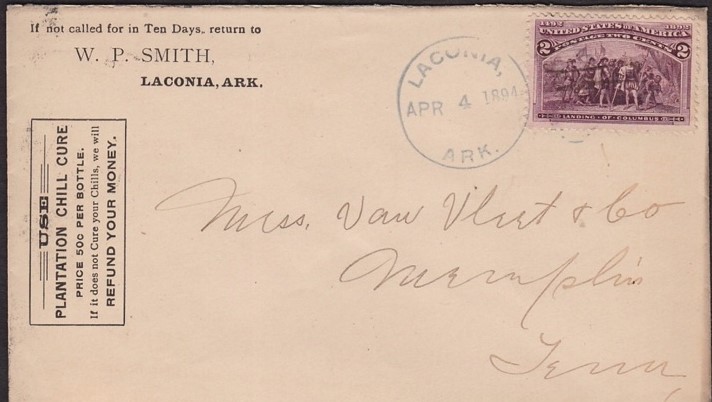 If not called for in Ten Days, return to
W. P. SMITH,
LACONIA, ARK.
USE
PLANTATION CHILL CURE
PRICE 50c PER BOTTLE.
If it does not Cure your Chills, we will
REFUND YOUR MONEY.
LACONIA,
APR 4 1894
ARK.
1492 1892
UNITED STATES OF AMERICA
POSTAGE TWO CENTS
2 2
LANDING OF COLUMBUS
Mess. Van Vleet & Co
Memphis
Tenn,